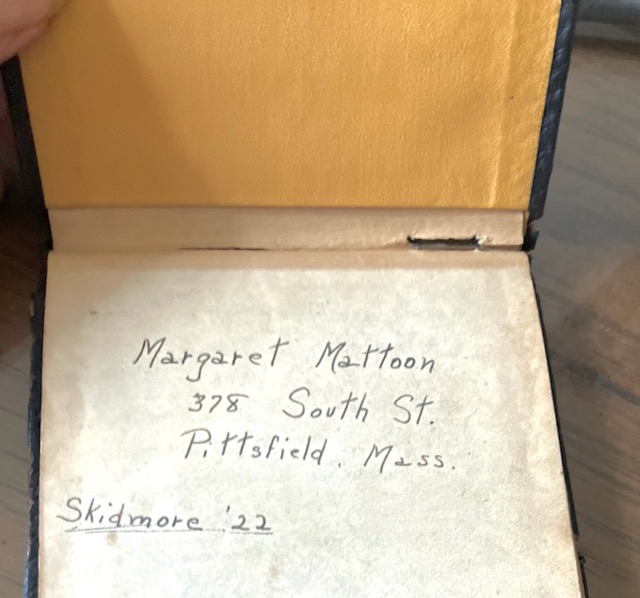 Margaret Mattoon
378 South St.
Pittsfield, Mass.
Skidmore '22